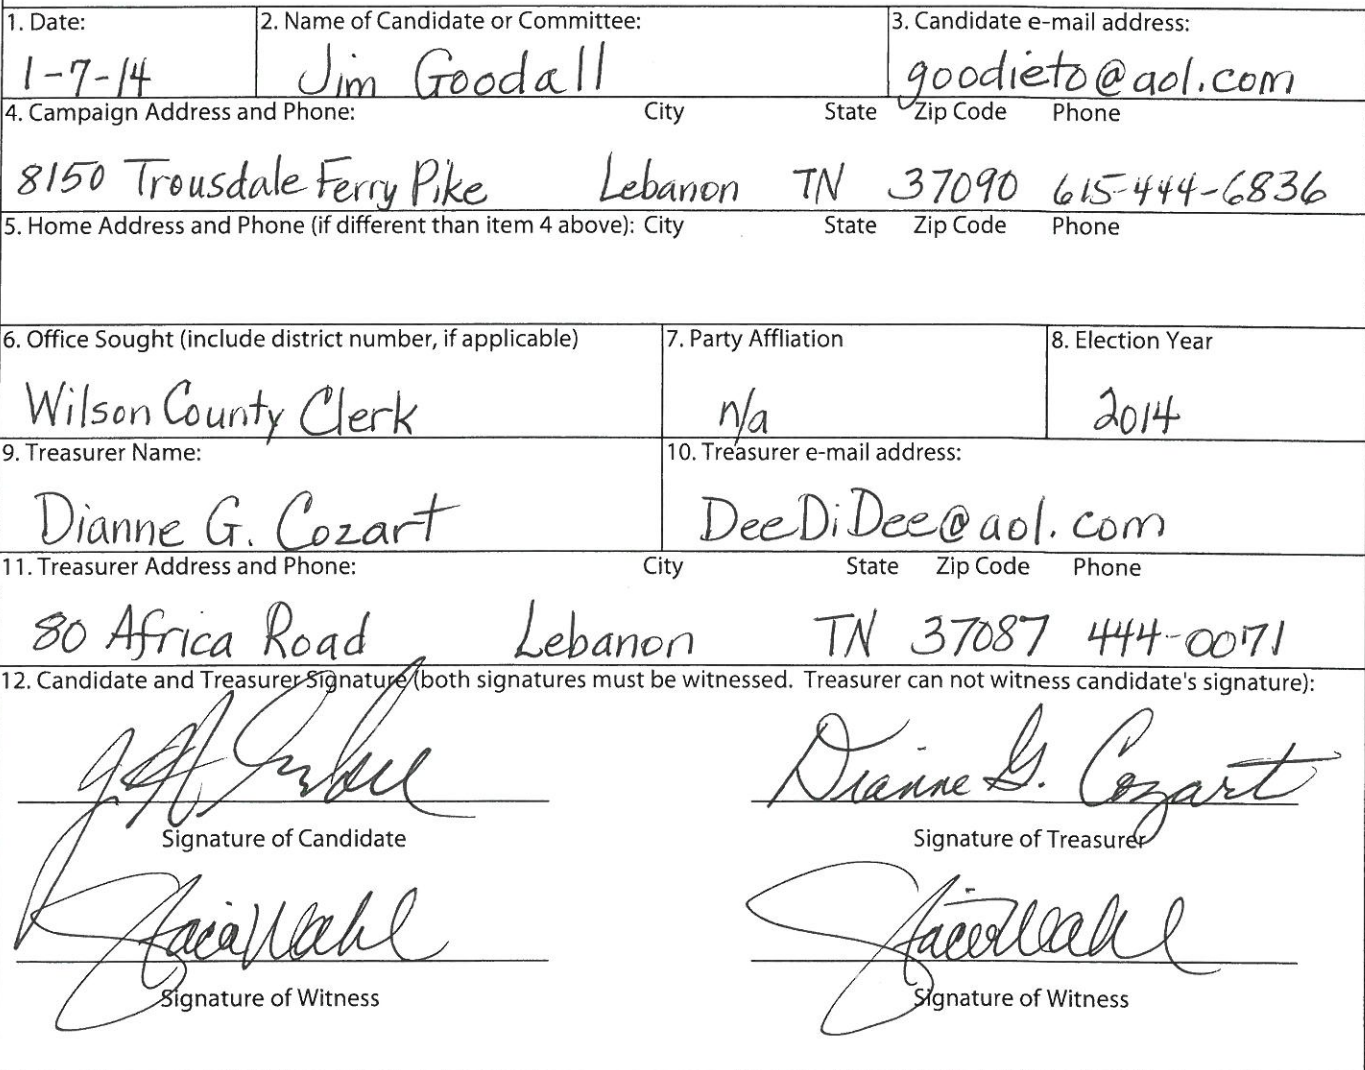 1. Date: 2. Name of Candidate or Committee: 3. Candidate e-mail address:
1-7-14 Jim Goodall goodieto@aol.com
4. Campaign Address and Phone: City State Zip Code Phone
8150 Trousdale Ferry Pike Lebanon TN 37090 615-444-6836
5. Home Address and Phone (if different than item 4 above): City State Zip Code Phone
6. Office Sought (include district number, if applicable) 7. Party Affliation 8. Election Year
Wilson County Clerk n/a 2014
9. Treasurer Name: 10. Treasurer e-mail address:
Dianne G. Cozart DeeDiDee@aol.com
11. Treasurer Address and Phone: City State Zip Code Phone
80 Africa Road Lebanon TN 37087 444-0071
12. Candidate and Treasurer Signature (both signatures must be witnessed. Treasurer can not witness candidate's signature):
Dianne G. Cozart
Signature of Candidate Signature of Treasurer
Signature of Witness Signature of Witness